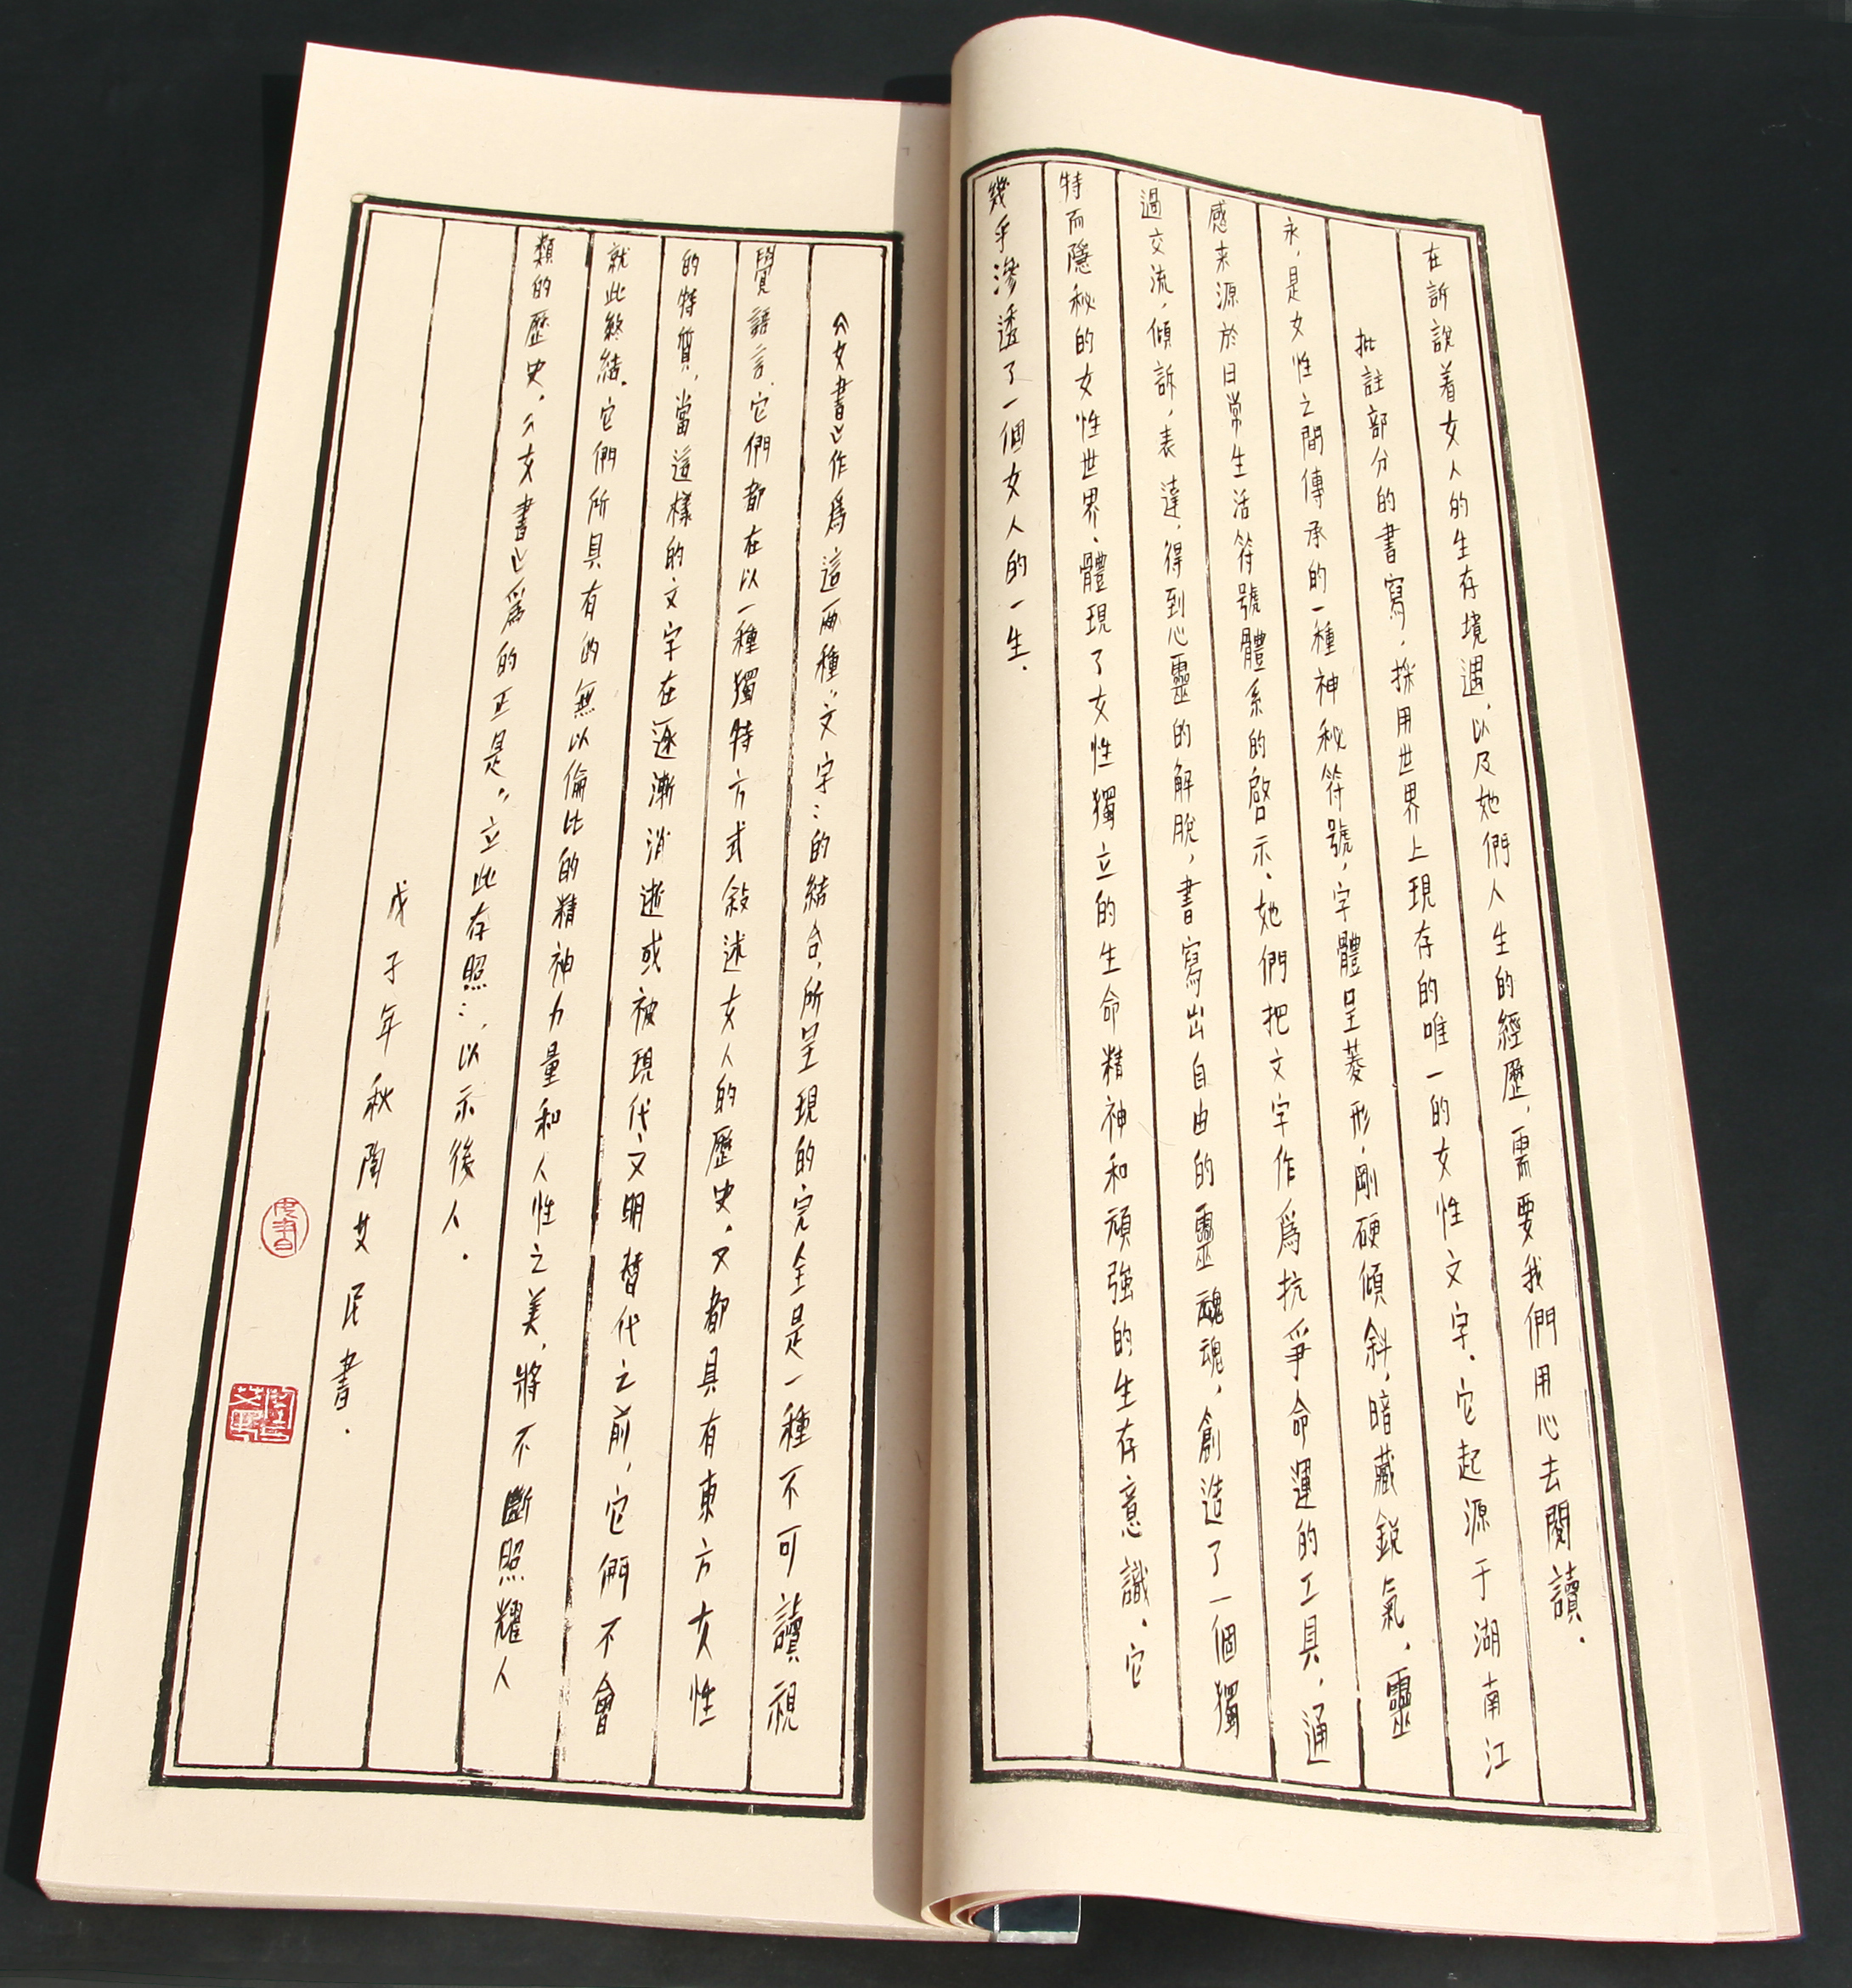 在訴說着女人的生存境遇，以及她們人生的經歷，需要我們用心去閱讀．
批註部分的書寫，採用世界上現存的唯一的女性文字．它起源于湖南江
永，是女性之間傳承的一種神秘符號，字體呈菱形，剛硬傾斜，暗藏鋭氣，靈
感来源於日常生活符號體系的啓示、她們把文字作爲抗爭命運的工具，通
過交流，傾訴，表達，得到心靈的解脫，書寫出自由的靈魂魂，創造了一個獨
特而隱秘的女性世界．體現了女性獨立的生命精神和頑強的生存意識．它
幾乎滲透了一個女人的一生．
《女書》作爲這兩種“文字”的結合，所呈現的完全是一種不可讀視
覺語言、它們都在以一種獨特方式敍述女人的歷史．又都具有東方女性
的特質，當這樣的文字在逐漸消逝或被現代文明替代之前，它們不會
就此終結．它們所具有的無以倫比的精神力量和人性之美，將不斷照耀人
類的歷史．《女書》爲的正是“立此存照”，以示後人．
戊子年秋陶艾民書．